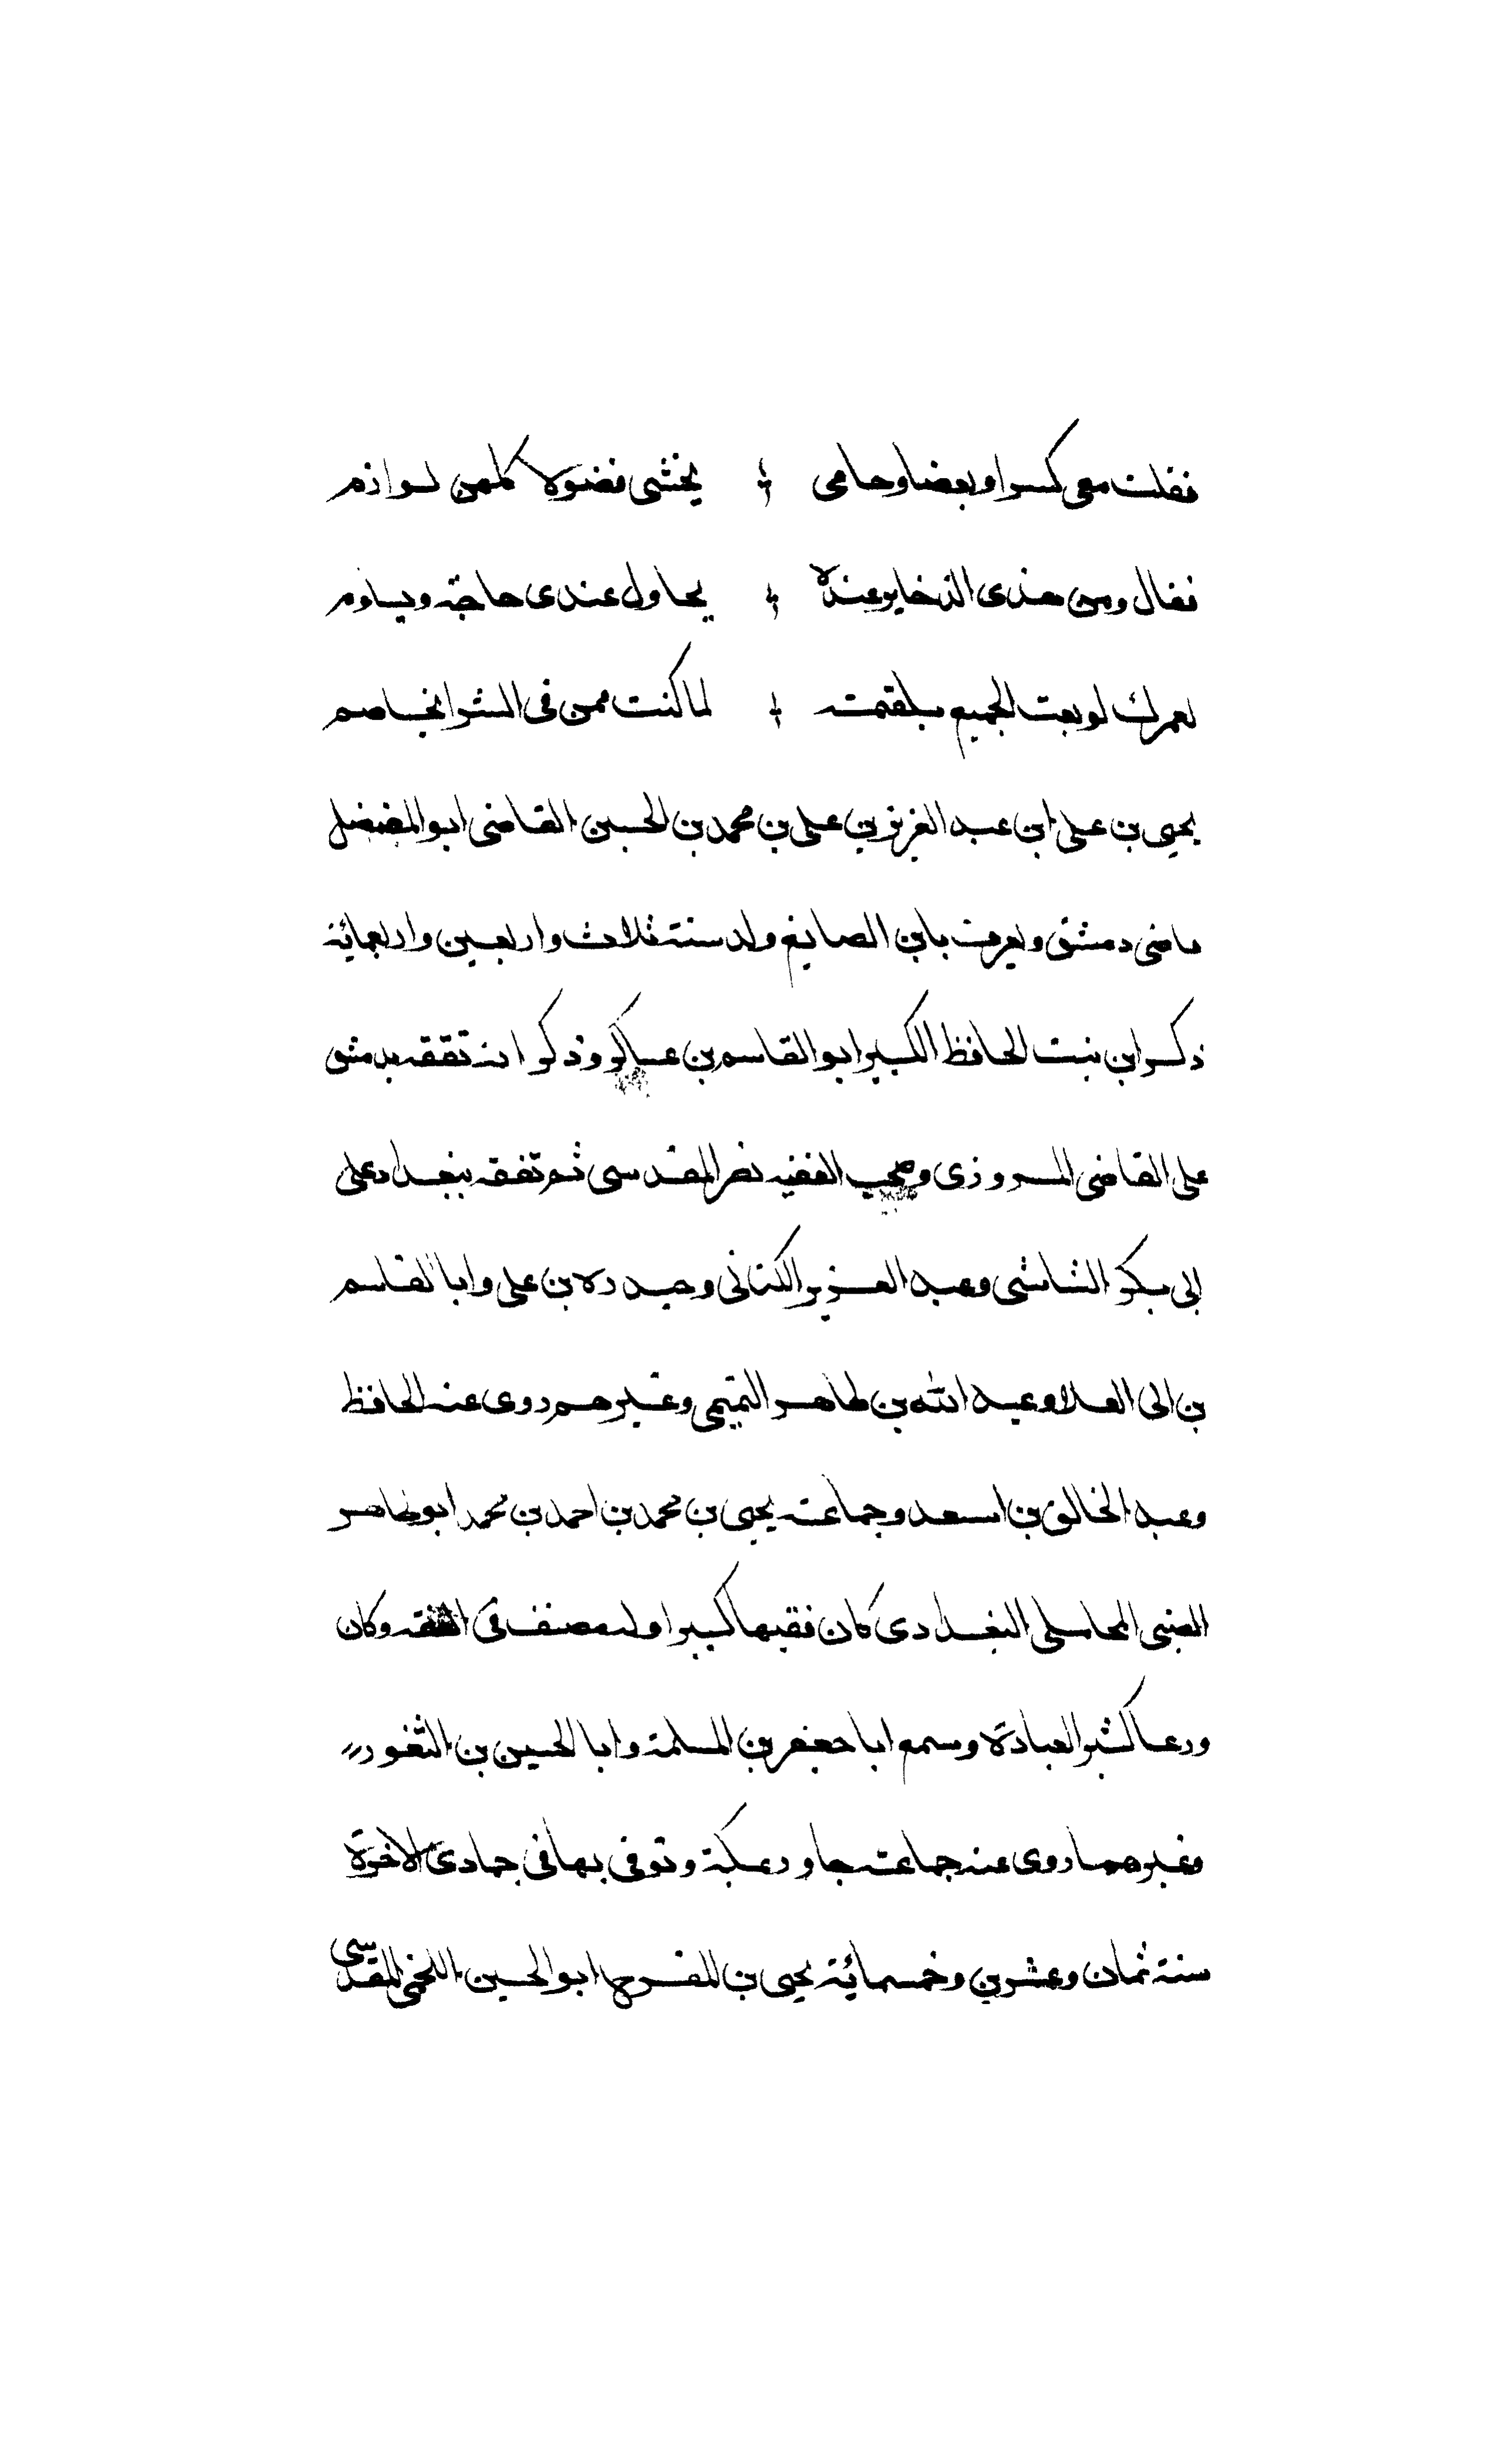 فقلت معى كسرا وبعضا وحامى ؛ يخشى فضولا كلهن لوازم
فقال ومن هذى الذخاير عنده ؛ يحاول عندى حاجة ويساوم
لعمرك لو بعت الجميع بلقمته ؛ لما كنت ممن فى الشرا يخاصم
يحيى بن على ابن عبد العزيز بن على بن محمد بن الحسين القاضى ابو المفضل
قاضى دمشق ويعرف بابن الصايغ ولد سنة ثلاث واربعين واربعمائة
ذكر ابن بنت الحافظ الكبير ابو القاسم بن عساكر وذكر انه تفقه بدمشق
على القاضى المروزى وصحب الفقيه نصر المقدسى ثم تفقه ببغداد على
ابى بكر الشاشى وعبد العزيز الكتانى وحيدره بن على وابا القاسم
بن ابى العلا وعبد الله بن طاهر التميمى وغيرهم روى عنه الحافظ
وعبد الخالق بن اسعد وجماعته يحيى بن محمد بن احمد بن محمد ابو طاهر
الضبى المحاملى البغدادى كان فقيها كبيرا وله مصنف فى الفقه وكان
ورعا كثير العبادة وسمع ابا جعفر بن المسلمة وابا الحسين بن النقور
وغيرهما روى عنه جماعته جاور بمكة وتوفى بها فى جمادى الاخرة
سنة ثمان وعشرين وخمسمائة يحيى بن المفرج ابو الحسين اللخمى المقدسى